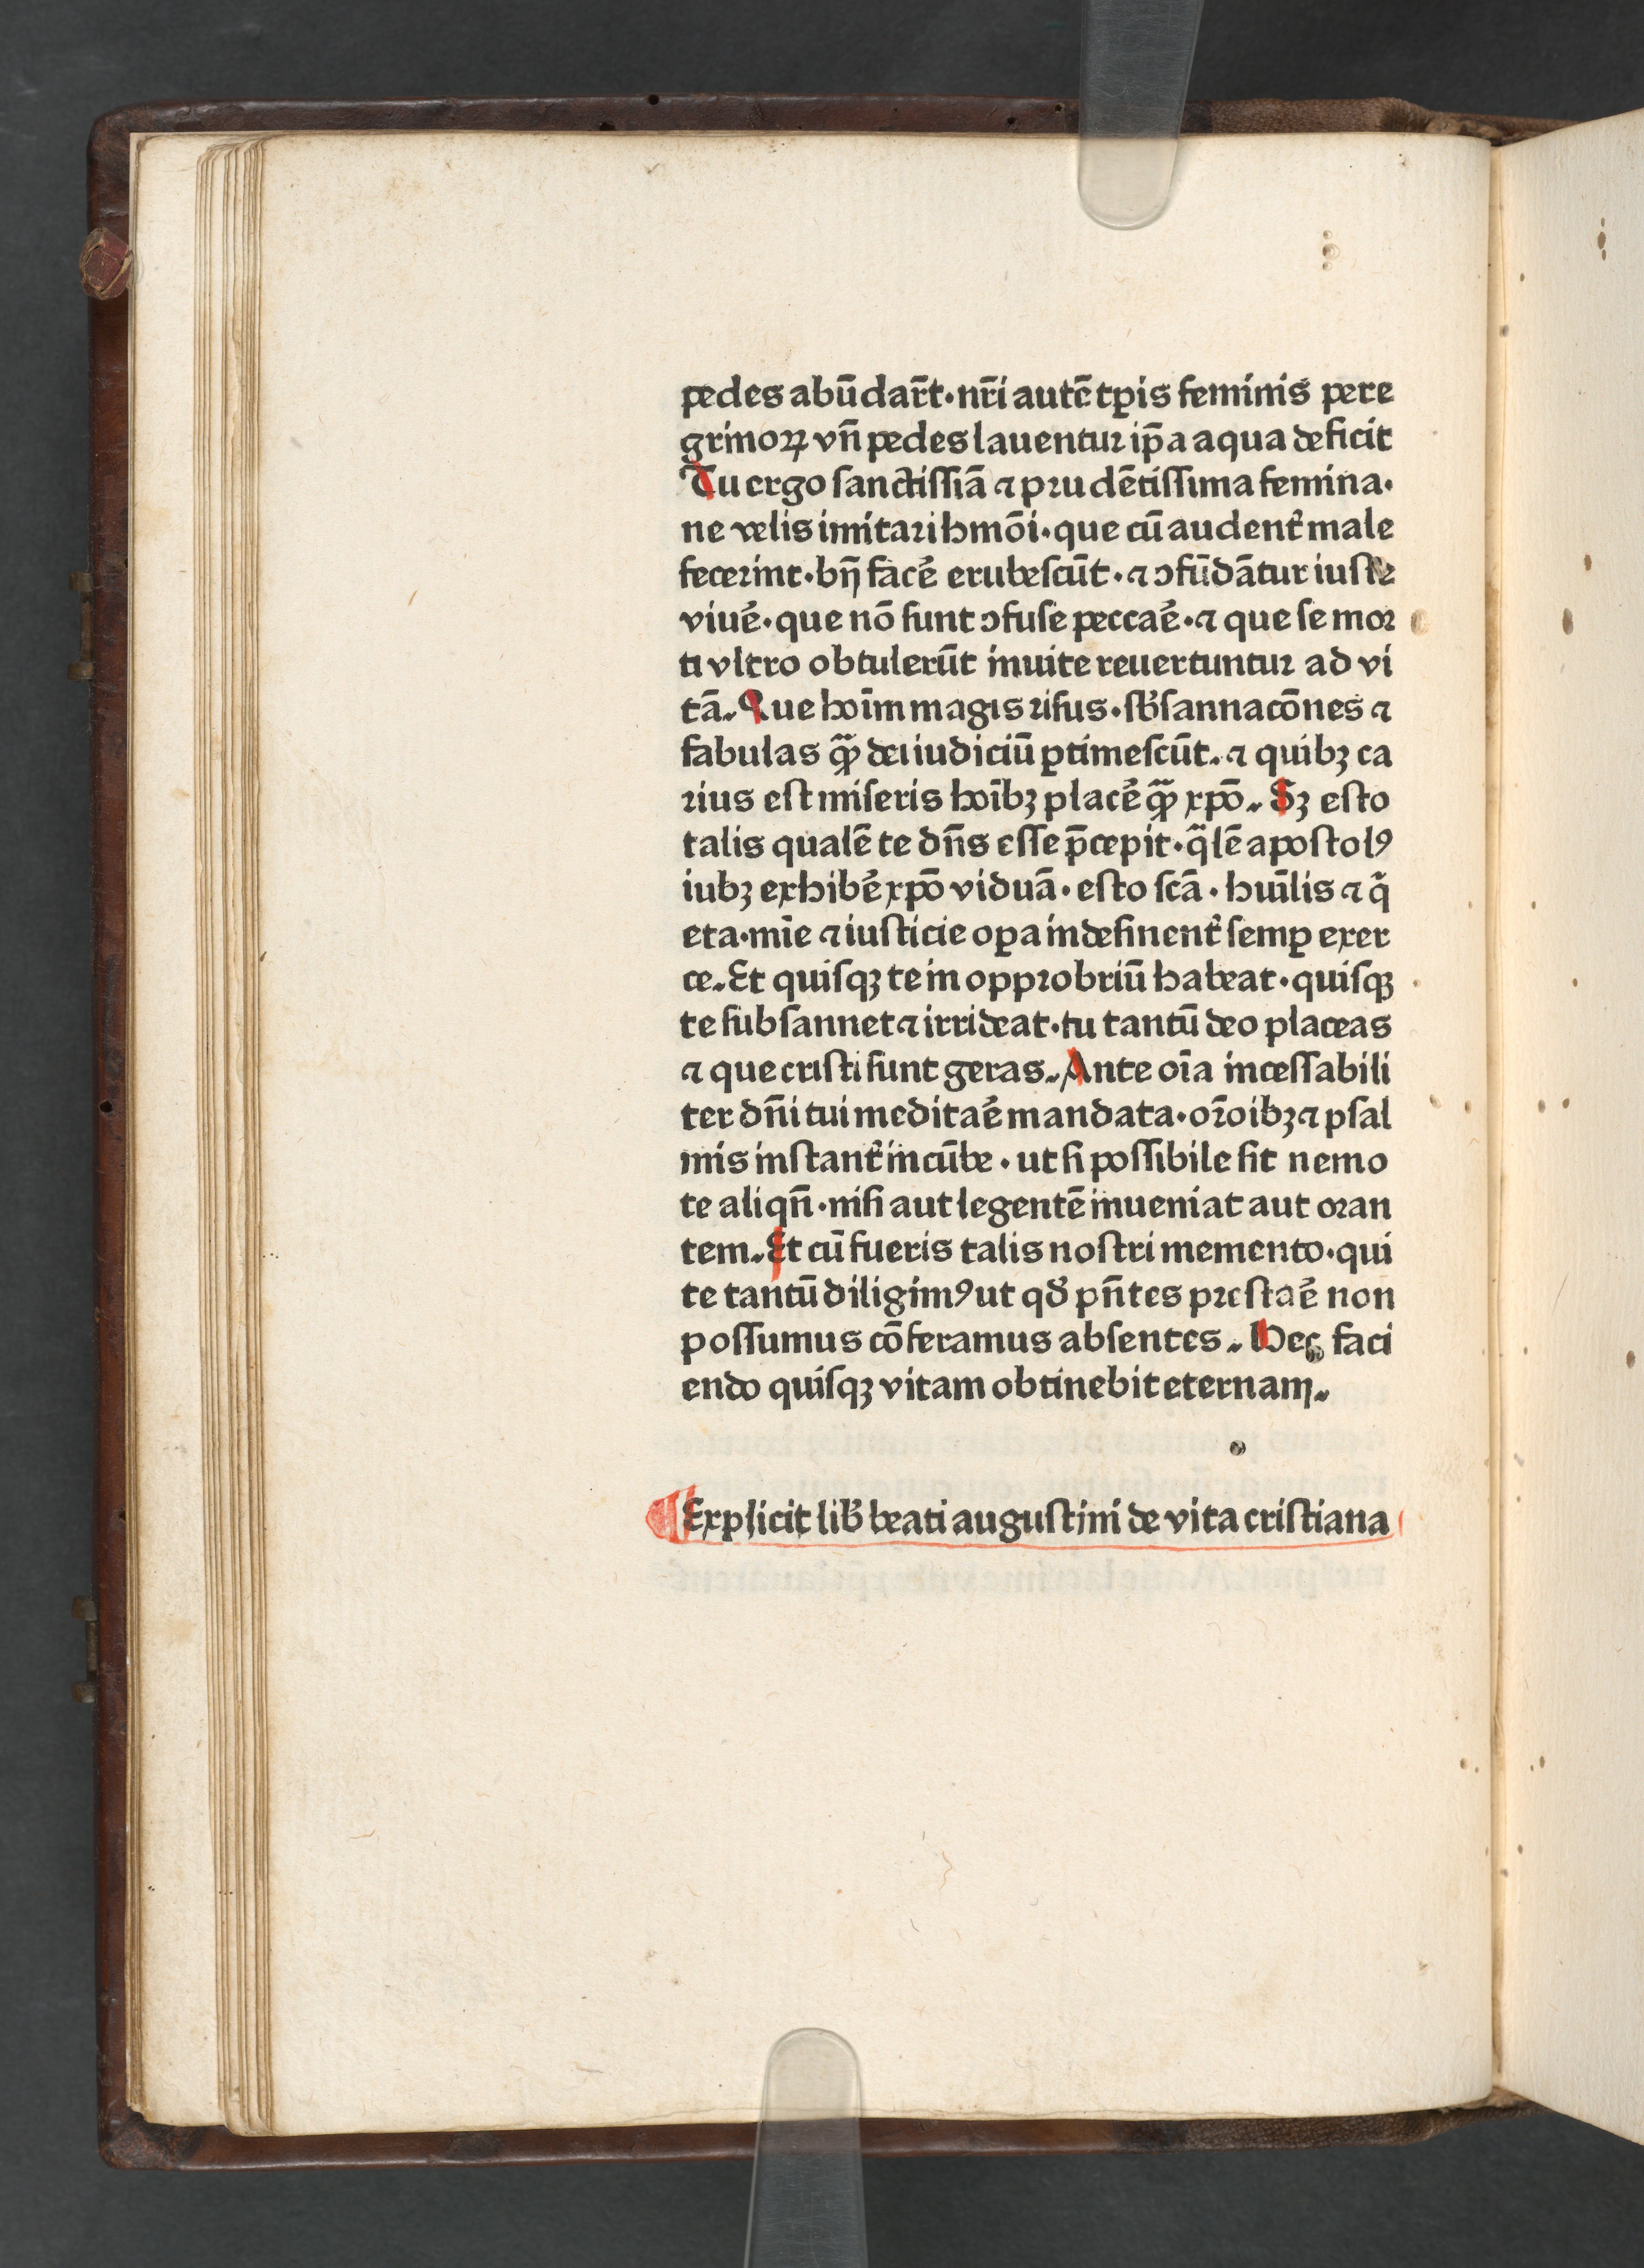 pedes abūdar̄t·nr̄i autē tꝑis feminis pere
grinoꝝ vn̄ pedes lauentur ip̄a aqua deficit
Tu ergo sanctissīa ⁊ prudētissima femina·
ne velis imitari hmōi·que cū audent̓ male
fecerint·bn̄ facē erubescūt·⁊ ↄfūdātur iuste
viuē·que nō sunt ↄfuse peccaē·⁊ que se mor
ti vltro obtulerūt inuite reuertuntur ad vi
tā. Que hoīm magis risus·sb̓sannacōnes ⁊
fabulas qꝫ̄ dei iudiciū ꝑtimescūt. ⁊ quibꝫ ca
rius est miseris hoībꝫ placē qꝫ̄ xpō. Sꝫ esto
talis qualē te dn̄s esse p̄cepit·q̄lē apostolꝰ
iubꝫ exhibē xpō viduā·esto scā·hu̅ilis ⁊ q̄
eta·mīe ⁊ iusticie oꝑa indesinent̓ semꝑ exer
ce. Et quisqꝫ te in opprobriū habeat·quisqꝫ
te subsannet ⁊ irrideat·tu tantū deo placeas
⁊ que cristi sunt geras. Ante oīa incessabili
ter dn̄i tui meditaē mandata·or̄oibꝫ ⁊ psal
mis instant̓ incūbe·ut si possibile sit nemo
te aliqn̄·nisi aut legentē inueniat aut oran
tem. Et cū fueris talis nostri memento·qui
te tantū diligimꝰ ut qd̓ pn̄tes prestaē non
possumus cōferamus absentes. Hec faci
endo quisqꝫ vitam obtinebit eternam.
¶Explicit lib̓ beati augustini de vita cristiana